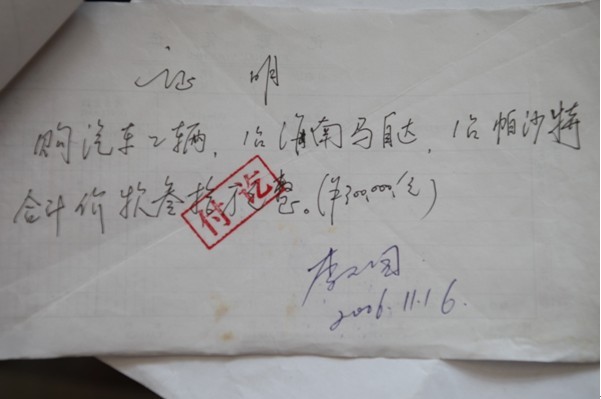 证 明
购汽车2辆，1台海南马自达，1台帕沙特
合计价款叁拾万元整。(¥300,000元)
付讫
李
2006.11.16.